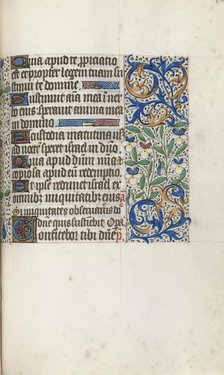 Quia apud te propiciatio
est et propter legem tuam sus
tinui te domine
Sustinuit aĩa mea ĩ ver
bo eius speravit anima mea
in domino
A custodia matutina usqz
ad noctẽ speret israel in dño
Quia apud dñm mĩa et
copiosa apud eũ redemptio
Et ipse redimet israel ex
omnibz iniquitatibz eius
Si iniquitates observaveris do
dñe quis sustinebit
Confitebor tibi dñe